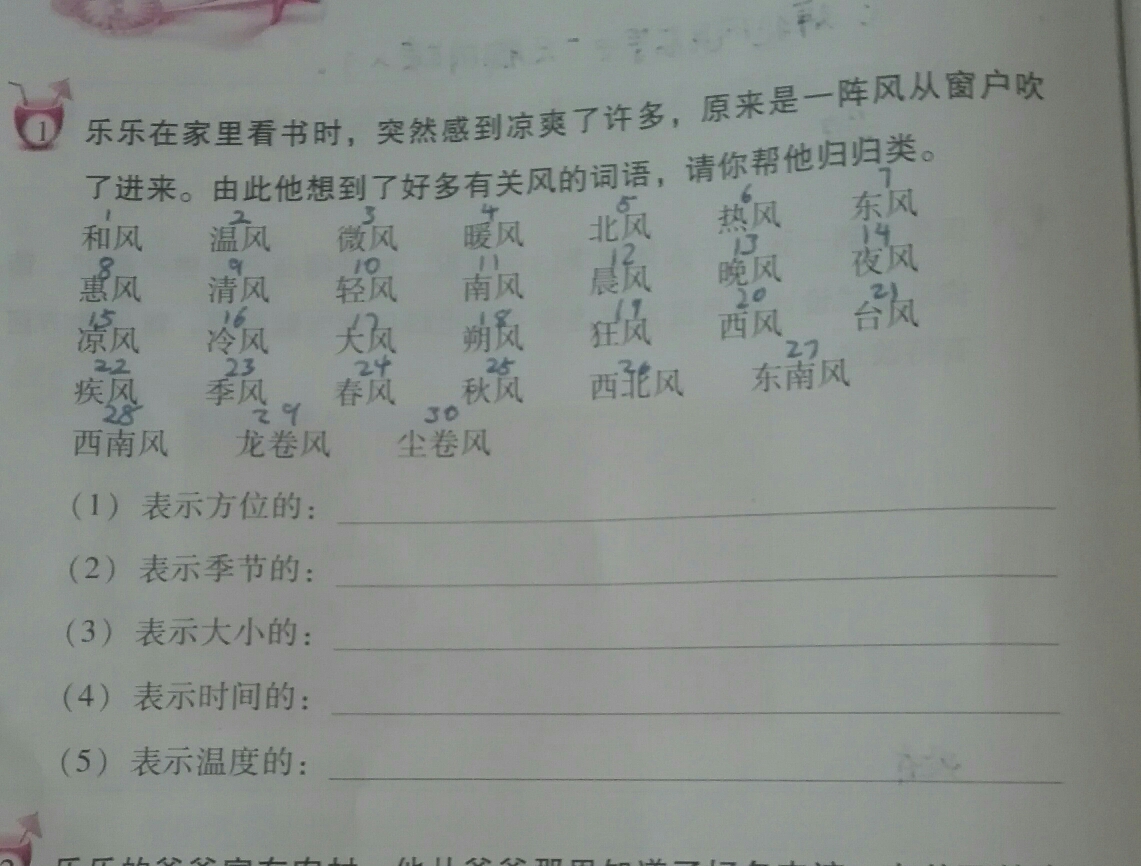 1 乐乐在家里看书时，突然感到凉爽了许多，原来是一阵风从窗户吹
了进来。由此他想到了好多有关风的词语，请你帮他归归类。
1 2 3 4 5 6 7
和风 温风 微风 暖风 北风 热风 东风
8 9 10 11 12 13 14
惠风 清风 轻风 南风 晨风 晚风 夜风
15 16 17 18 19 20 21
凉风 冷风 大风 朔风 狂风 西风 台风
22 23 24 25 26 27
疾风 季风 春风 秋风 西北风 东南风
28 29 30
西南风 龙卷风 尘卷风
（1）表示方位的：
（2）表示季节的：
（3）表示大小的：
（4）表示时间的：
（5）表示温度的：